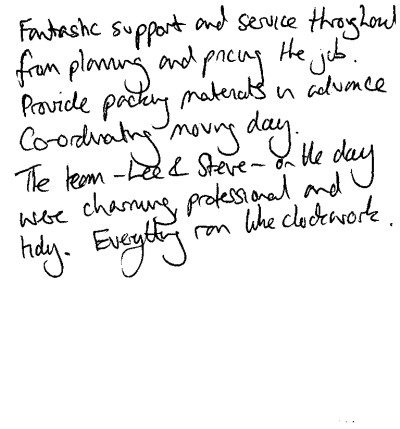 Fantastic support and service throughout
from planning and pricing the job.
Provide packing materials in advance
Co-ordinating moving day.
The team - Lee & Steve - on the day
were charming, professional and
tidy. Everything ran like clockwork.